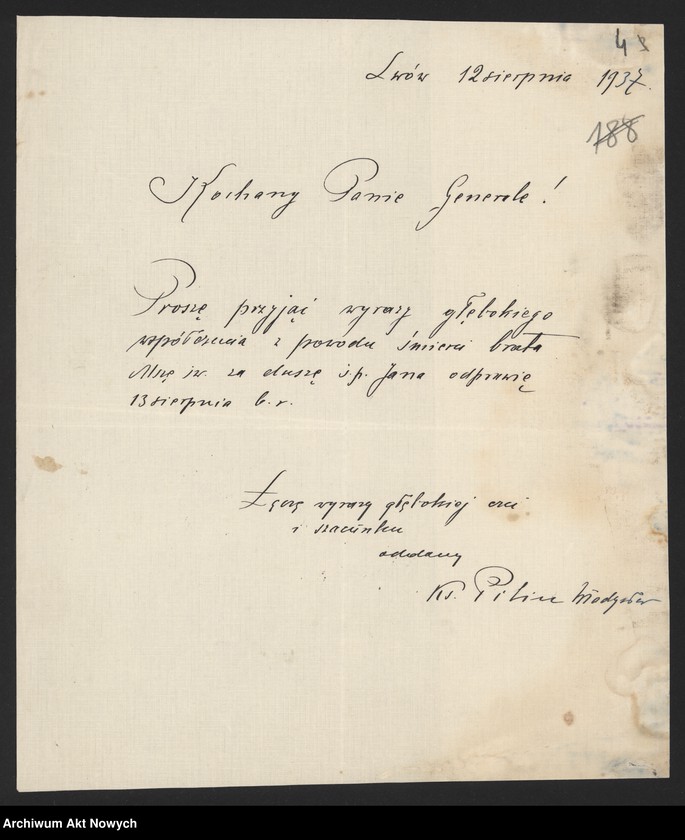 48
Lwów 12 sierpnia 1937.
188
Kochany Panie Generale!
Proszę przyjąć wyrazy głębokiego
współczucia z powodu śmierci brata
Mszę św. za duszę ś.p. Jana odprawię
13 sierpnia b.r.
Łączę wyrazy głębokiej czci
i szacunku
oddany
Ks. Włodzysław
Archiwum Akt Nowych